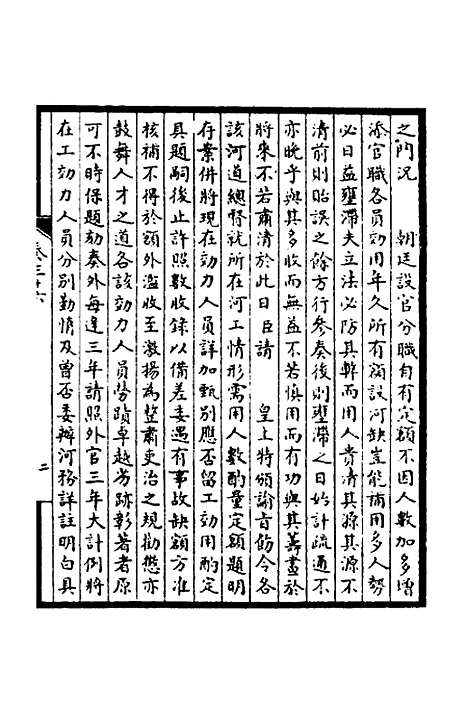 之門況　　朝廷設官分職自有定額不因人數加多增
添官職各員効用年久所有額設河缺豈能補用多人勢
必日益壅滯夫立法必防其弊而用人貴清其源其源不
清前則貽誤之餘方行參奏後則壅滯之日始計疏通不
亦晩乎與其多收而無益不若慎用而有功與其籌畫於
將來不若肅清於此日臣請　　皇上特頒諭旨飭令各
該河道總督就所在河工情形需用人數酌量定額題明
存案併將現在効力人員詳加甄別應否留工効用酌定
具題嗣後止許照數收錄以備差委遇有事故缺額方准
核補不得於額外濫收至激揚為整肅吏治之規勸懲亦
鼓舞人才之道各該効力人員勞蹟卓越劣跡彰著者原
可不時保題劾奏外每逢三年請照外官三年大計例將
在工効力人員分別勤惰及曾否委辦河務詳註明白具
卷三十六
二